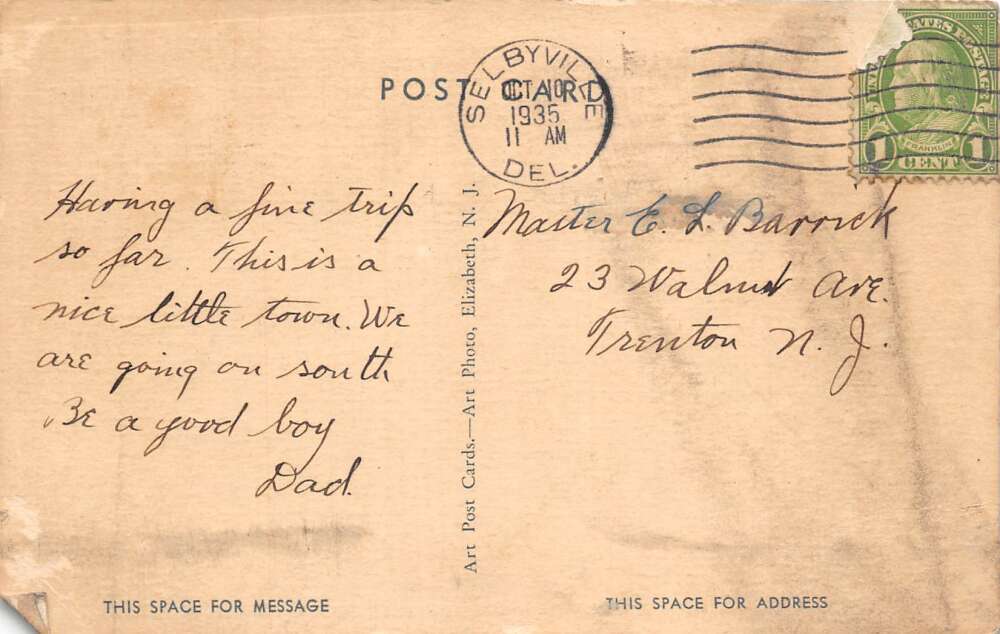 POST CARD
SELBYVILLE
OCT 10
1935
11 AM
DEL.
UNITED STATES POSTAGE
FRANKLIN
1 CENT 1
Having a fine trip
so far. This is a
nice little town. We
are going on south
Be a good boy
Dad.
Art Post Cards.—Art Photo, Elizabeth, N. J.
Master E. L. Barrick
23 Walnut Ave.
Trenton N. J.
THIS SPACE FOR MESSAGE
THIS SPACE FOR ADDRESS